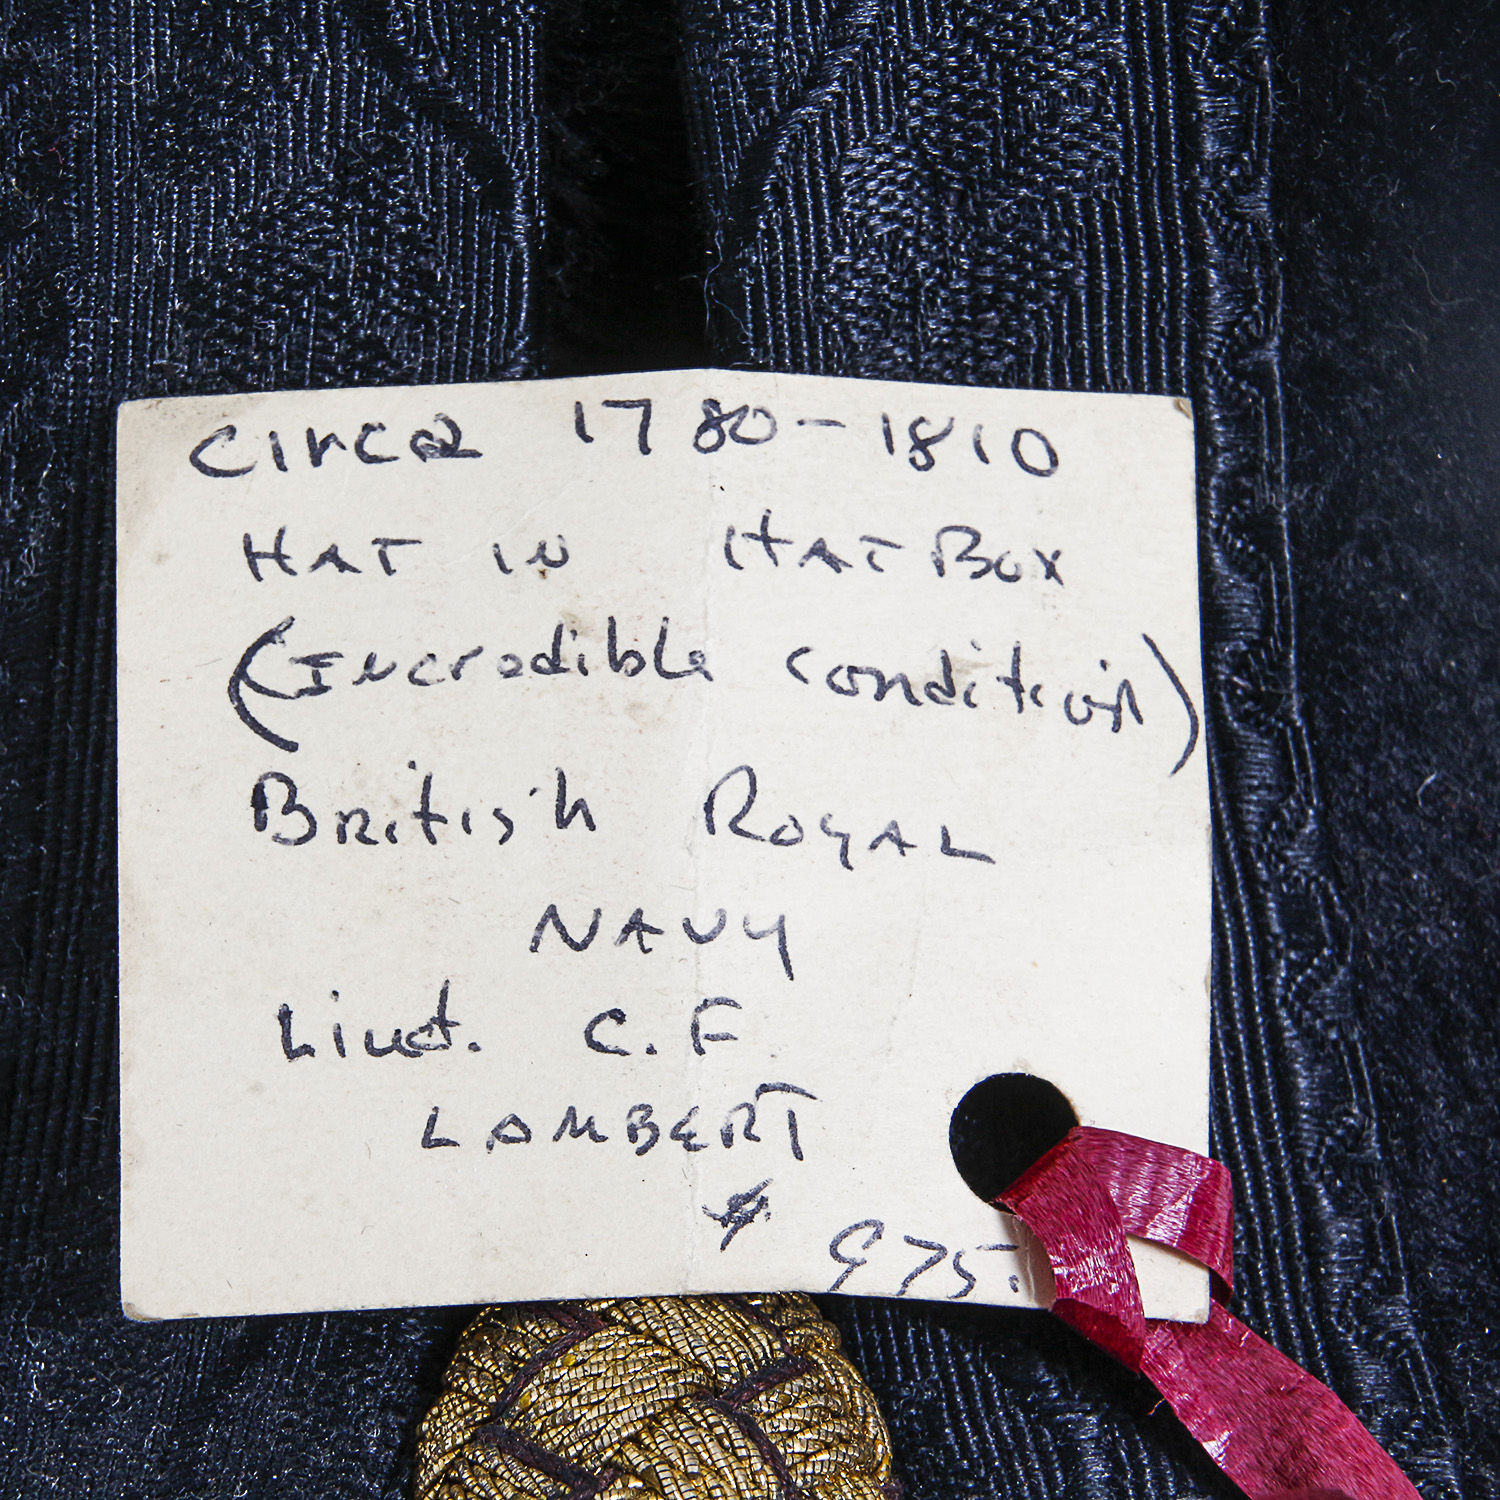 Circa 1780-1810
HAT IN HAT BOX
(Incredible condition)
British ROYAL
NAVY
Liut. C.F
LAMBERT
$ 975.